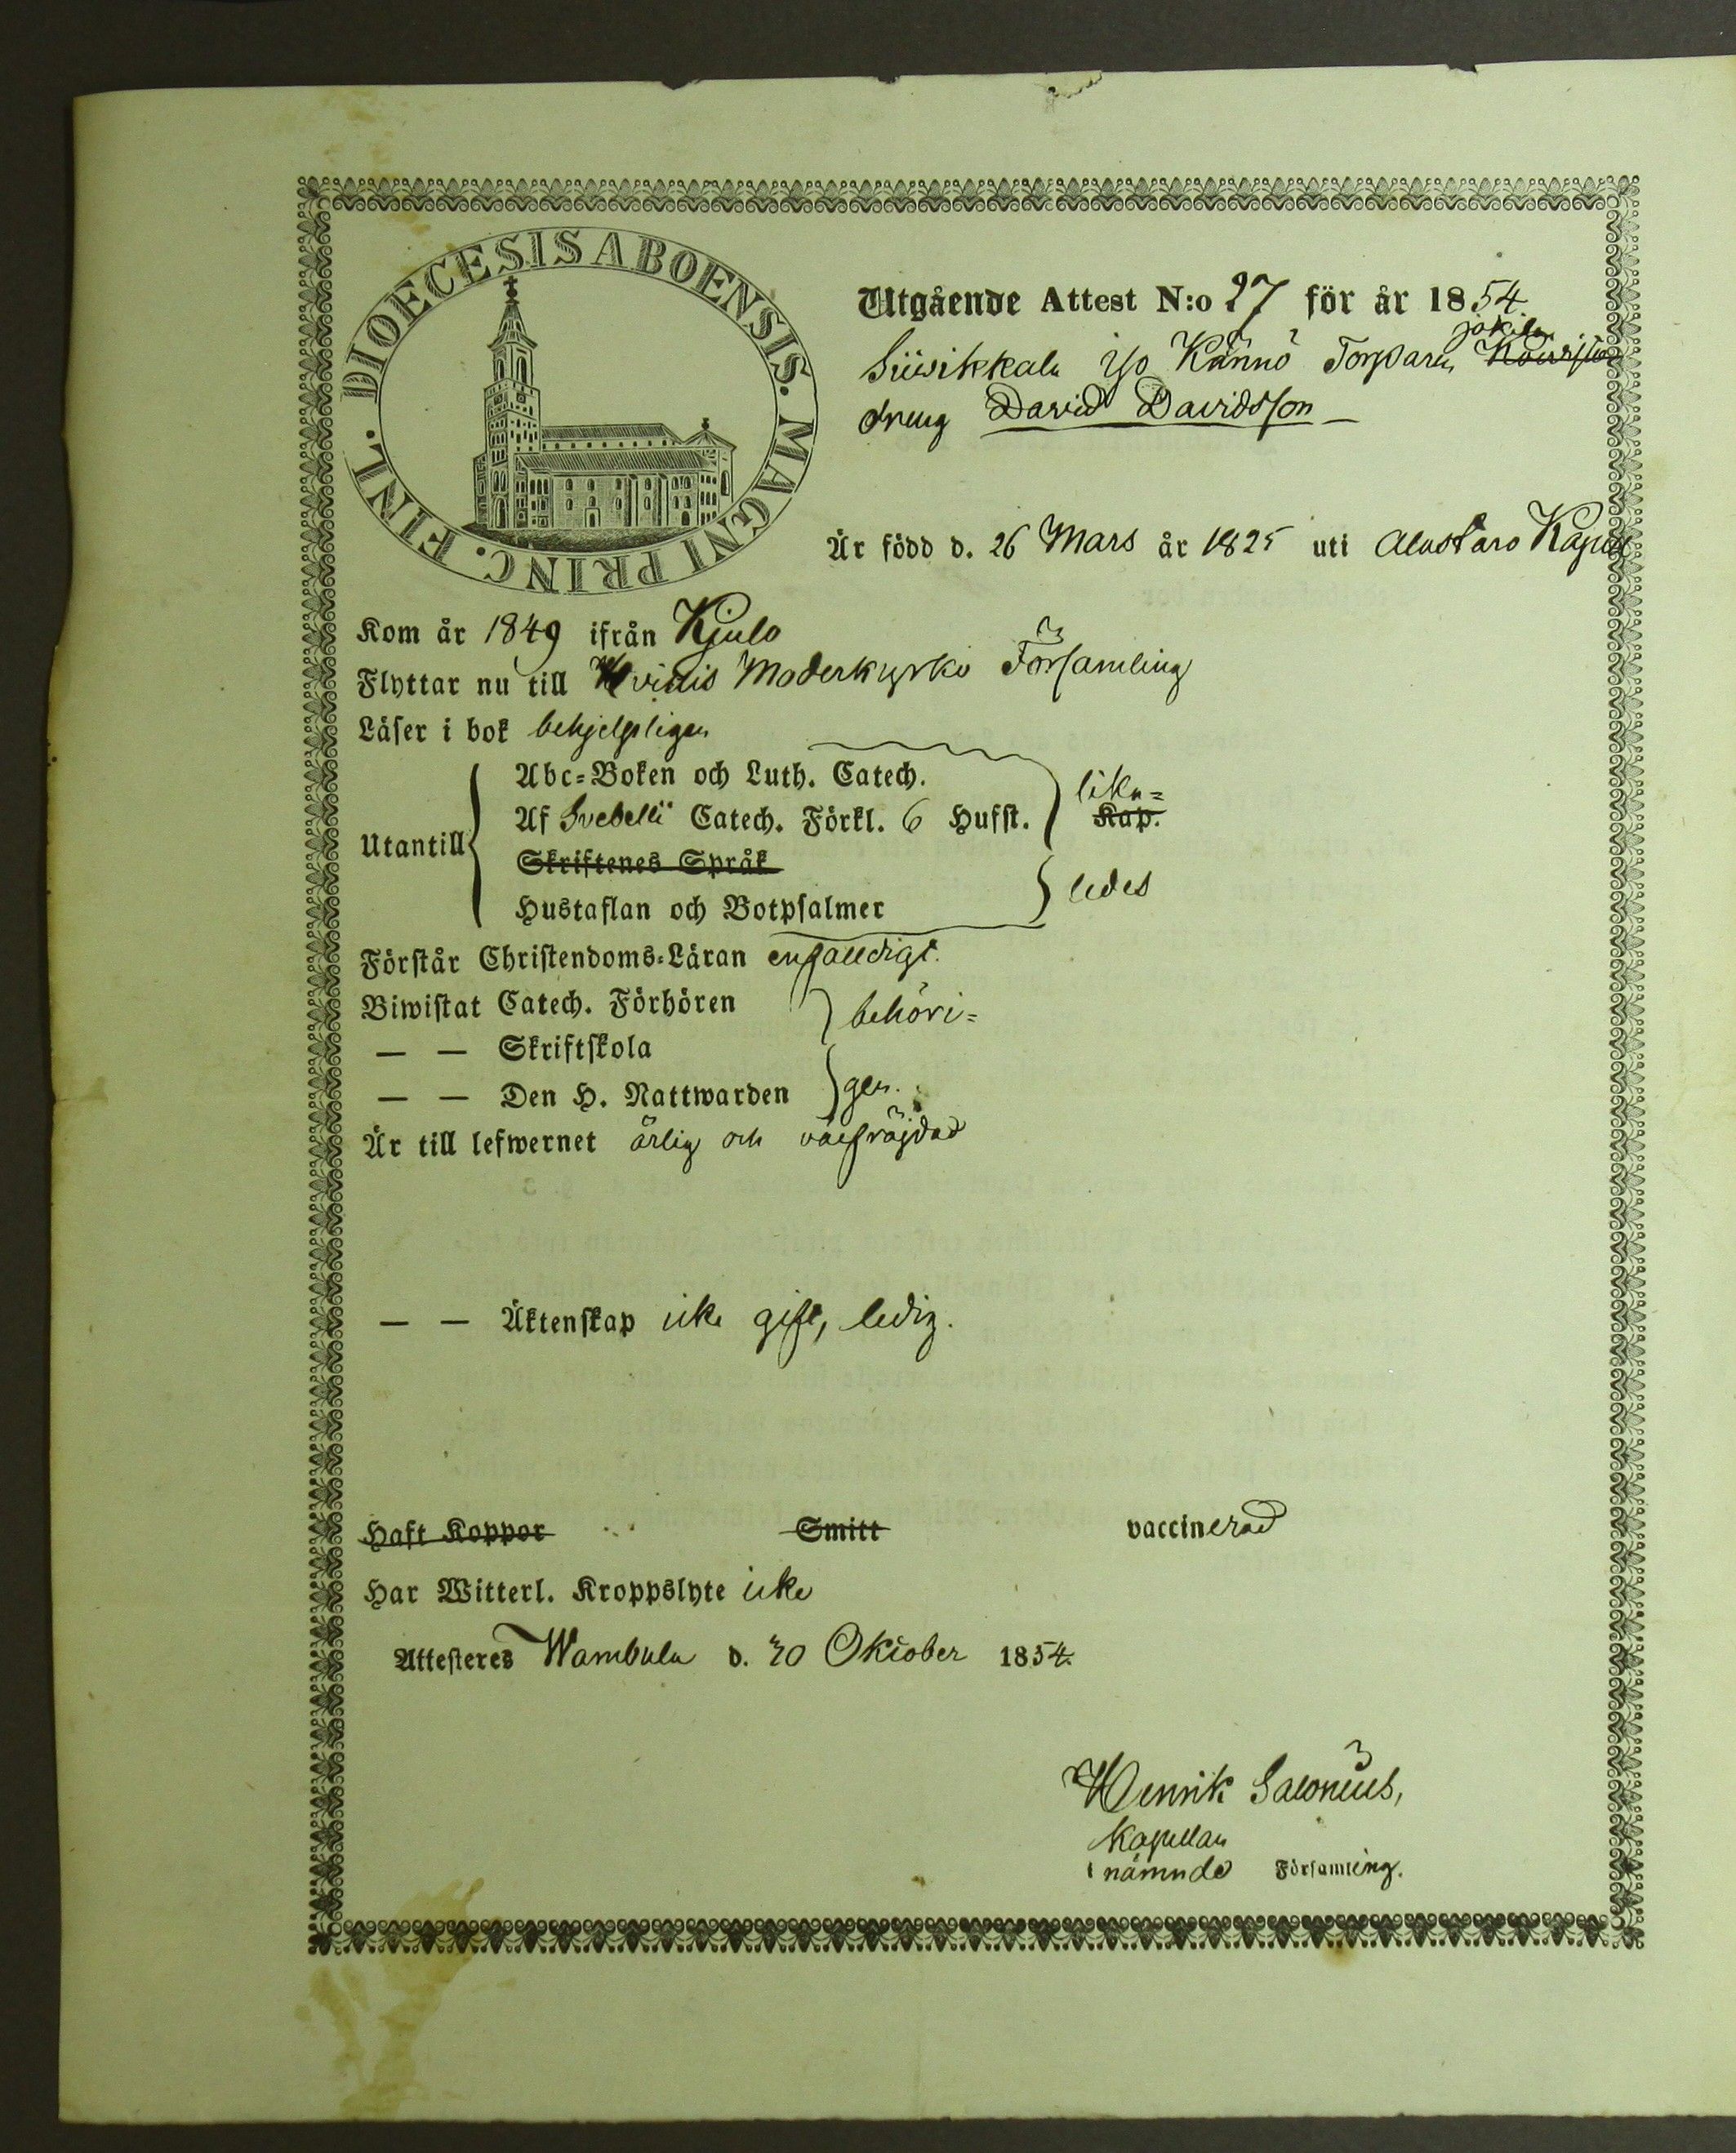 DIOECESIS ABOENSIS. MAGNI PRINC. FINL.
Utgående Attest N:o 27 för år 1854.
jokila
Siiwikkala Yso Kännö Torpare
dreng David Davidsson
Är född d. 26 Mars år 1825 uti Alastaro Kapell
Kom år 1849 ifrån Kjulo
Flyttar nu till Hvittis Moderkyrko Församling
Läser i bok behjelpligen
Utantill
Abc-Boken och Luth. Catech.
Af Svebelii Catech. Förkl. 6 Hufst. Kap.
lika=
Skriftenes Språk
Hustaflan och Botpsalmer
ledes
Förstår Christendoms-Läran enfalldigt.
Biwistat Catech. Förhören
behöri=
— — Skriftskola
— — Den H. Nattwarden
gen.
Är till lefwernet ärlig och välfräjdad
— — Äktenskap icke gift, ledig.
Haft Koppor Smitt vaccinerad
Har Witterl. Kroppslyte icke
Attesteres Wambula d. 30 Oktober 1854.
Henrik Salonius,
Kapellan
i nämnde Församling.